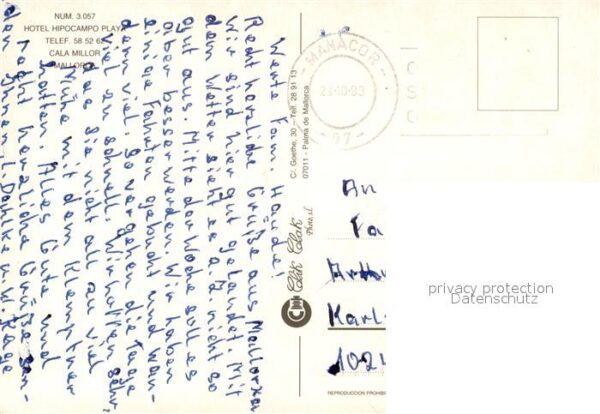 NUM. 3.057
HOTEL HIPOCAMPO PLAYA
TELEF. 58 52 62
CALA MILLOR
MALLORCA
Werte Fam. Haude!
Recht herzliche Grüße aus Mallorca
Wir sind hier gut gelandet. Mit
dem Wetter sieht es z.Z. nicht so
gut aus. Mitte der Woche soll es
aber besser werden. Wir haben
einige Fahrten gebucht und wan-
dern viel. So vergehen die Tage
viel zu schnell. Wir hoffen sehr,
das sie nicht all zu viel
Mühe mit dem Klemptner
hatten. Alles Gute und
recht herzliche Grüße sen-
den Ihnen
C/. Goethe, 30 - Tell. 28 91 13
07011 - Palma de Mallorca
Clik Clak
Photo s.l.
MANACOR
23-10-93
07
An
Fa
Karl-
102
privacy protection
Datenschutz
REPRODUCCION PROHIBI